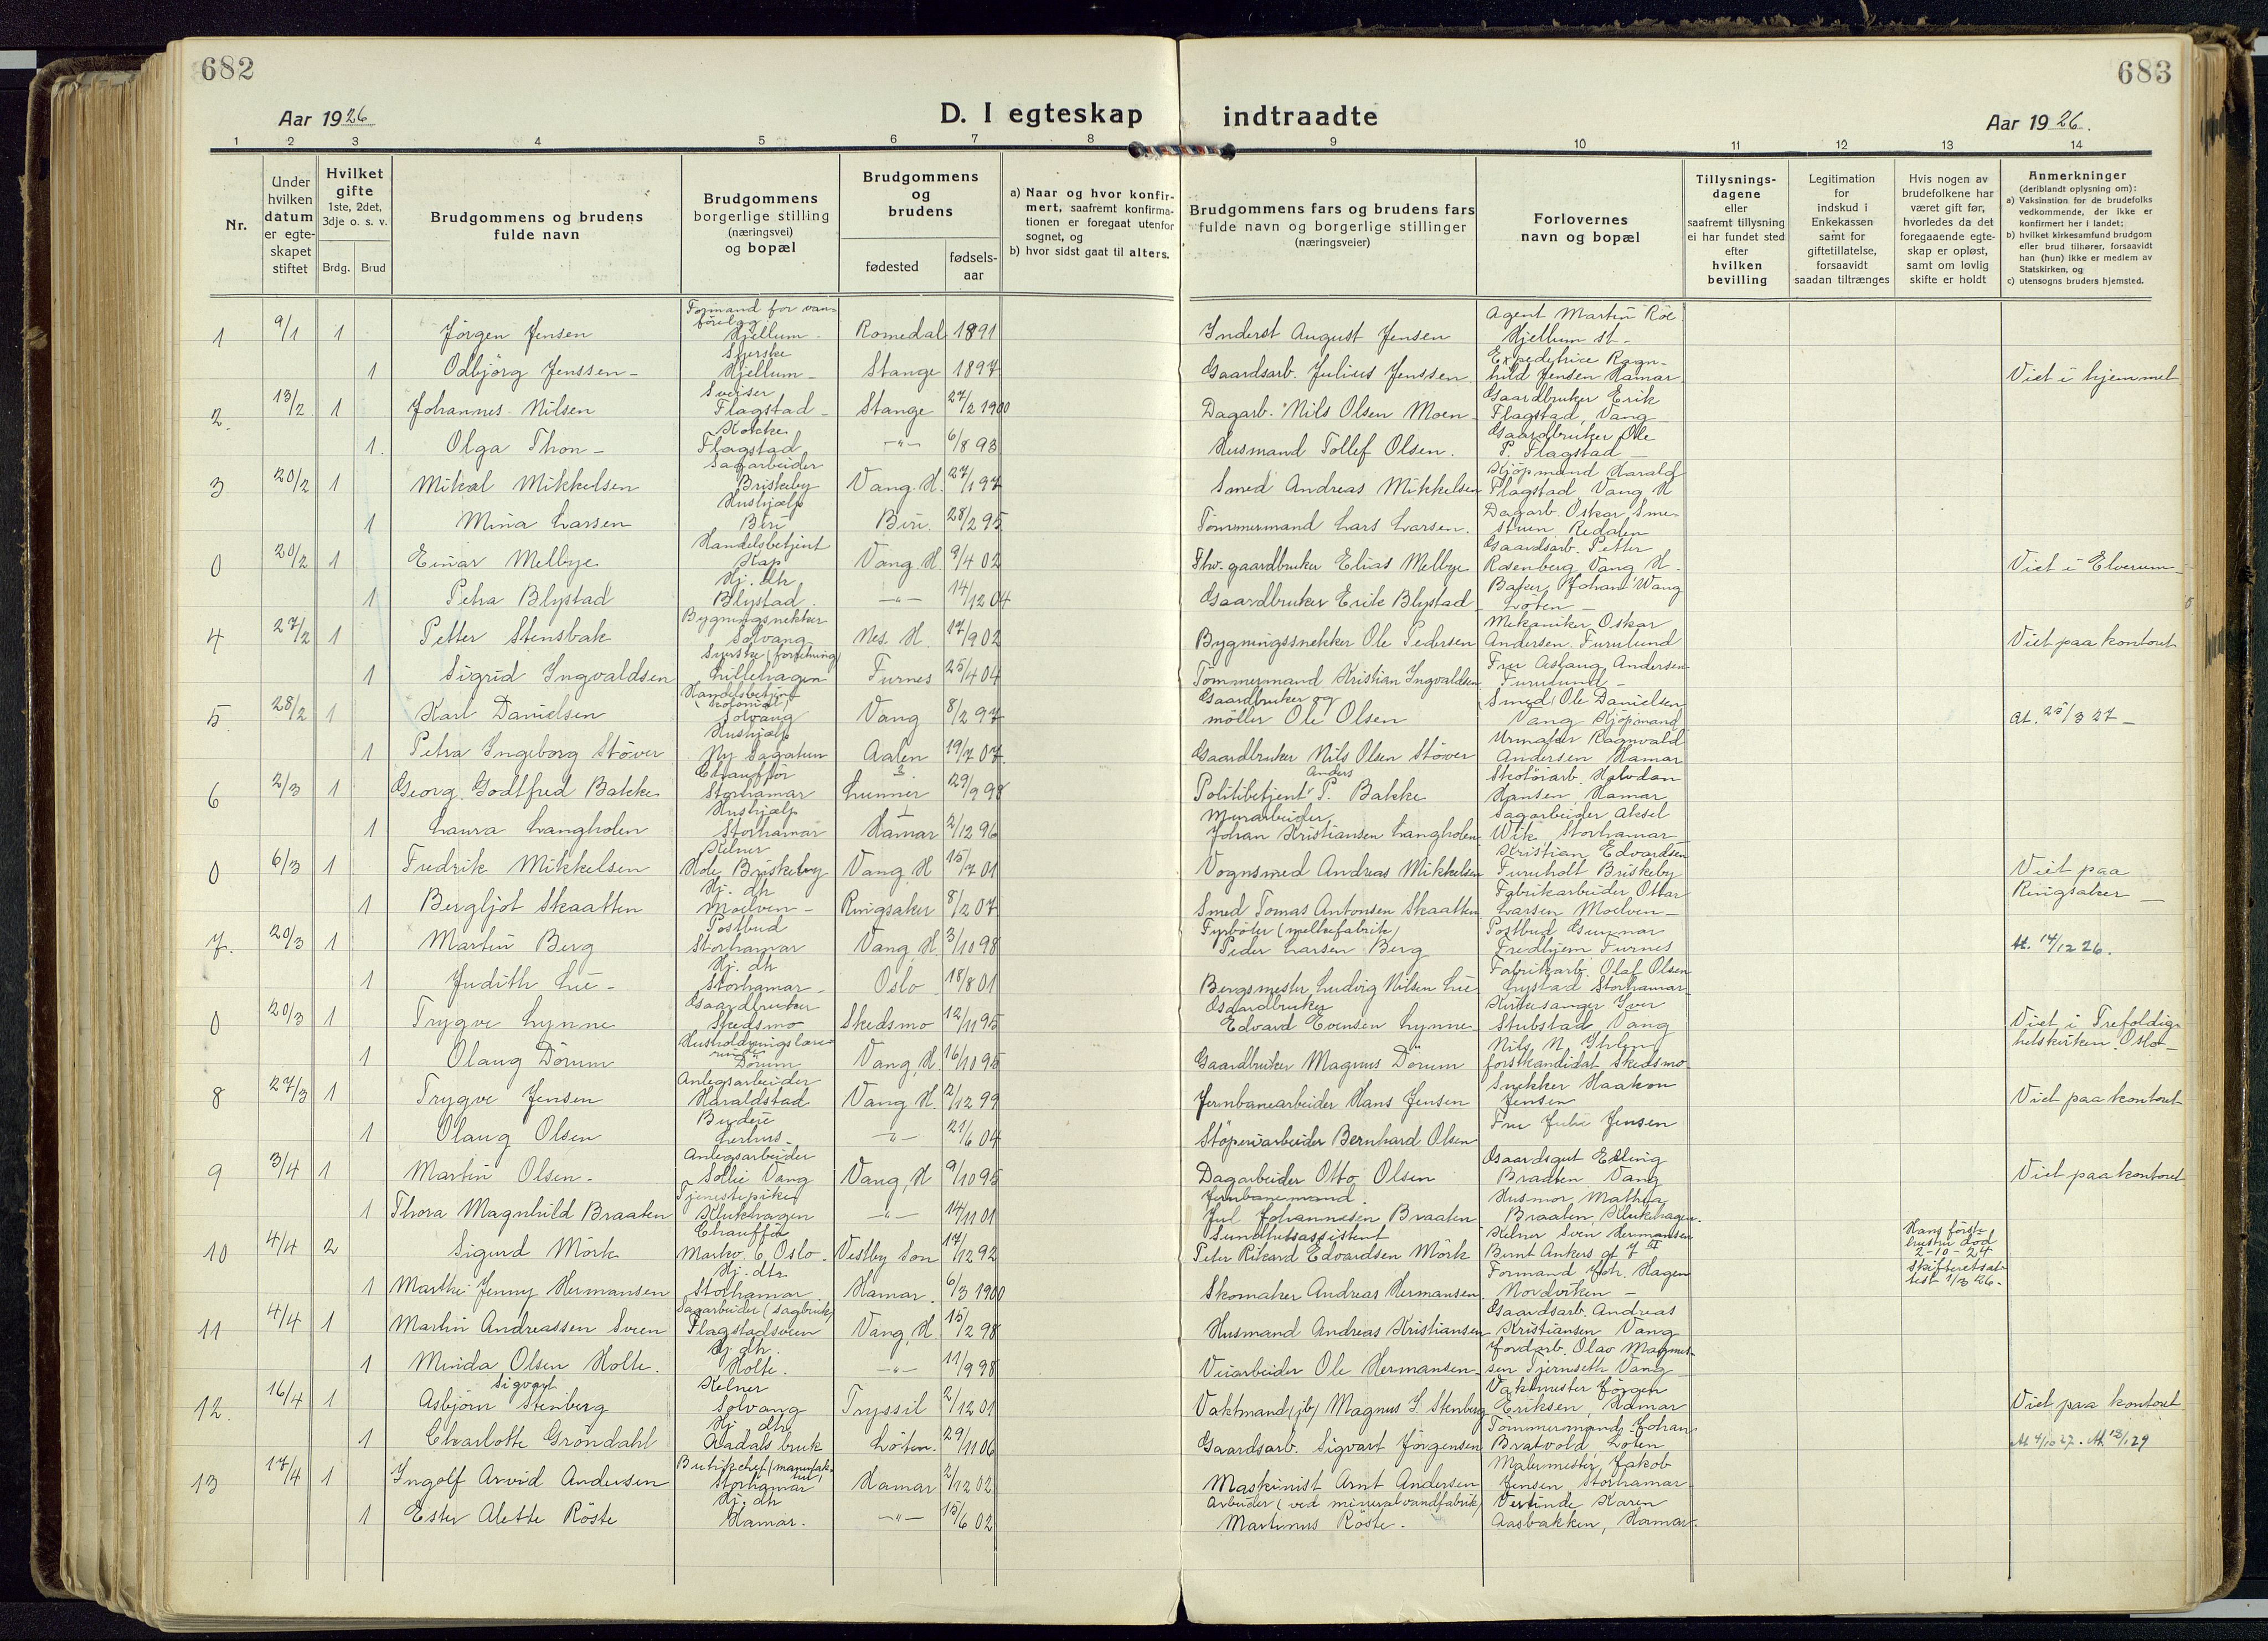 682
683
Aar 1926
D. I egteskap indtraadte
Aar 1926.
1 2 3 4 5 6 7 8 9 10 11 12 13 14
Nr.
Under hvilken datum er egteskapet stiftet
Hvilket gifte 1ste, 2det, 3dje o. s. v.
Brdg. Brud
Brudgommens og brudens fulde navn
Brudgommens borgerlige stilling (næringsvei) og bopæl
Brudgommens og brudens
fødested
fødsels-aar
a) Naar og hvor konfir-mert, saafremt konfirma-tionen er foregaat utenfor sognet, og
b) hvor sidst gaat til alters.
Brudgommens fars og brudens fars fulde navn og borgerlige stillinger (næringsveier)
Forlovernes navn og bopæl
Tillysnings-dagene eller saafremt tillysning ei har fundet sted efter hvilken bevilling
Legitimation for indskud i Enkekassen samt for giftetillatelse, forsaavidt saadan tiltrænges
Hvis nogen av brudefolkene har været gift før, hvorledes da det foregaaende egte-skap er opløst, samt om lovlig skifte er holdt
Anmerkninger (deriblandt oplysning om):
a) Vaksination for de brudefolks vedkommende, der ikke er konfirmert her i landet;
b) hvilket kirkesamfund brudgom eller brud tilhører, forsaavidt han (hun) ikke er medlem av Statskirken, og
c) utensogns bruders hjemsted.
1 9/1 1 Jørgen Jensen Hjellum Romedal 1891 Inderst August Jensen Agent Martin Röe Hjellum st.
1 Odbjörg Jenssen Syerske Hjellum Stange 1897 Gaardsarb. Julius Jenssen Expeditrice Ragn-hild Jensen Hamar Viet i hjemmet
2. 13/2 1 Johannes Nilsen Sveiser Flagstad Stange 27/2 1900 Dagarb. Nils Olsen Moen Gaardbruker Erik Flagstad, Vang
1. Olga Thon Kokke Flagstad -"- 6/8 93 Husmand Tollef Olsen. Gaardbruker Ole P. Flagstad
3 20/2 1 Mikal Mikkelsen Sagarbeider Briskeby Vang. H. 27/1 97 Smed Andreas Mikkelsen Kjöpmand Harald Flagstad, Vang H
1 Mina Larsen Hushjælp Biri Biri. 28/2 95 Tömmermand Lars Larsen. Dagarb. Oskar Sme-stuen Redalen
0 20/2 1 Einar Melbye Handelsbetjent Kap Vang. H. 9/4 02 Fhv. gaardbruker Elias Melbye Gaardsarb. Petter Rosenberg Vang H. Viet i Elverum
1 Petra Blystad Hj. dtr Blystad. -"- 14/12 04 Gaardbruker Erik Blystad Baker Johan Wang Löten
4 27/2 1 Petter Stensbak Bygningsnekker Solvang Nes. H. 17/9 02 Bygningssnekker Ole Pedersen Mekaniker Oskar Andersen. Furulund Viet paa kontoret
1 Sigrid Ingvaldsen Syerske (forretning) Lillehagen Furnes 25/4 04 Tömmermand Kristian Ingvaldsen Fru Aslaug Andersen Furulund
5. 28/2 1 Karl Danielsen Handelsbetjent (kolonial) Solvang Vang 8/2 97 Gaardbruker og möller Ole Olsen Smed Ole Danielsen Vang Kjöpmand At. 25/3 27
1 Petra Ingeborg Stöver Hushjælp Ny Sagatun Aalen 19/7 07 Gaardbruker Nils Olsen Stöver Urmaker Ragnvald Andersen Hamar
6 2/3 1 Georg Godtfred Bakke Chaufför Storhamar Lunner 29/9 98 Politibetjent Anders P. Bakke Skotöiarb. Halvdan Hansen Hamar
1 Laura Langholen Hushjælp Storhamar Hamar 2/12 96 Murarbeider Johan Kristiansen Langholen Sagarbeider Aksel Wik. Storhamar
0 6/3 1 Fredrik Mikkelsen Kelner Briskeby Vang H 15/7 01 Vognsmed Andreas Mikkelsen Kristian Edvardsen Furuholt Briskeby Viet paa Ringsaker
1 Bergljot Skaatten Hj. dtr Moelven Ringsaker 8/2 07 Smed Tomas Antonsen Skaatten Fabrikarbeider Ottar Larsen Moelven
7. 20/3 1 Martin Berg Postbud Storhamar Vang, H. 3/10 98 Fyrböter (melkefabrik) Peder Larsen Berg Postbud Gunnar Fredhjem Furnes At. 14/12 26.
1 Judith Lie Hj. dtr Storhamar Oslo 18/8 01 Bergsmester Ludvig Nilsen Lie Fabrikarb. Olaf Olsen Lystad Storhamar
0 20/3 1 Trygve Lynne Gaardbruker Skedsmo Skedsmo 12/11 95 Gaardbruker Edvard Evensen Lynne Kirkesanger Iver Stubstad Vang Viet i Trefoldig-hetskirken Oslo
1 Olaug Dörum Husholdningslære-rinde Dörum Vang, H. 16/10 95 Gaardbruker Magnus Dörum Nils N. forstkandidat Skedsmo
8 27/3 1 Trygve Jensen Anlegsarbeider Haraldstad Vang H. 2/12 99 Jernbanearbeider Hans Jensen Snekker Haakon Jensen Viet paa kontoret
1 Olaug Olsen Budeie Lerhus -"- 21/6 04 Stöperiarbeider Bernhard Olsen Fru Julie Jensen
9 3/4 1 Martin Olsen. Anlegsarbeider Sollie Vang Vang, H 9/10 95 Dagarbeider Otto Olsen Gaardsgut Erling Bradten Vang Viet paa kontoret
1 Thora Magnhild Braaten Tjenestepike Klukhagen -"- 14/11 01 Jernbanemand. Jul Johannesen Braaten Husmor Mathea Braaten, Klukehagen.
10 4/4 2 Sigurd Mörk Chaufför Markv. 6 Oslo. Vestby Son 17/12 92 Sundhetsassistent Peter Rikard Edvardsen Mörk Kelner Sven Hermansen Bernt Ankers gt 7 III Hans förste hustru död 2-10-24 Skifteretsat-test 1/3 26.
1 Marthe Jenny Hermansen Hj. dtr. Storhamar Hamar. 6/3 1900 Skomaker Andreas Hermansen Formand Joh. Hagen Nordviken
11 4/4 1 Martin Andreassen Sveen Sagarbeider (sagbruk) Flagstadsveen Vang, H. 15/2 98 Husmand Andreas Kristiansen Gaardsarb. Andreas Kristiansen Vang
1 Minda Olsen Holte. Hj. dtr. Holte. -"- 11/9 98 Veiarbeider Ole Hermansen Jordarb. Olav Magnus-sen Tjernseth Vang
12. 16/4 1 Asbjörn Sigvart Stenberg Kelner Solvang Tryssil 2/12 01 Vaktmand (jb) Magnus S. Stenberg Vaktmester Jörgen Eriksen, Hamar Viet paa kontoret
1 Charlotte Gröndahl Hj. dtr. Aadals bruk Löten. 29/11 06 Gaardsarb. Sigvart Jörgensen Tömmermand Johan Bratvold Löten At 4/10 27. At 12/1 29
13 17/4 1 Ingolf Arvid Andersen Butikchef (manufak-tur) Storhamar Hamar 2/12 02 Maskinist Arnt Andersen Malermester Jakob Jensen Storhamar
1 Ester Alette Röste Hj. dtr Hamar. -"- 15/6 02 Arbeider (ved mineralvandfabrik) Martinus Röste. Vertinde Karen Aasbakken, Hamar.